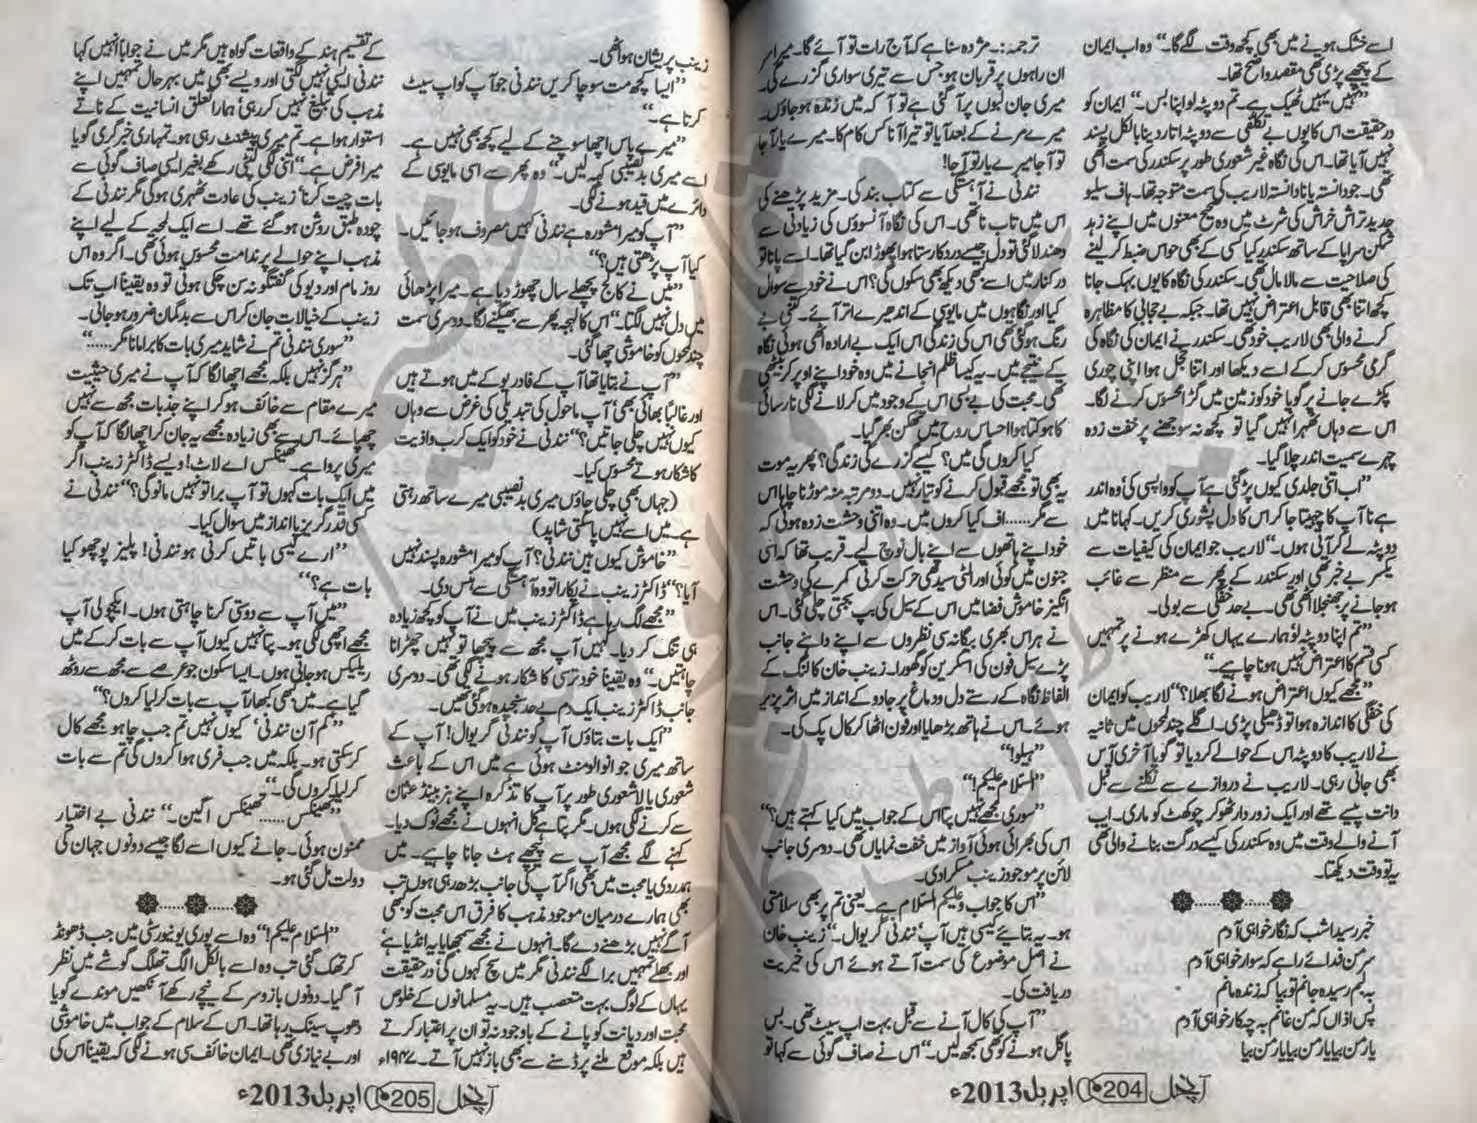 اسے خشک ہونے میں بھی کچھ وقت لگے گا۔“ وہ اب ایمان
کے پیچھے پڑی تھی مقصد واضح تھا۔
”نہیں یہیں ٹھیک ہے۔ تم دوپٹہ لو اپنا بس۔“ ایمان کو
درحقیقت اس کا یوں بے تکلفی سے دوپٹہ اتار دینا بالکل پسند
نہیں آیا تھا۔ اس کی نگاہ غیر شعوری طور پر سکندر کی سمت اٹھی
تھی۔ جو دانستہ یا نادانستہ لاریب کی سمت متوجہ تھا۔ ہاف سلیو
جدید تراش خراش کی شرٹ میں وہ صحیح معنوں میں اپنے زہد
شکن سراپا کے ساتھ سکندر کیا کسی کے بھی حواس ضبط کرلینے
کی صلاحیت سے مالا مال تھی۔ سکندر کی نگاہ کا یوں بہک جانا
کچھ اتنا بھی قابل اعتراض نہیں تھا۔ جبکہ بے حجابی کا مظاہرہ
کرنے والی بھی لاریب خود تھی۔ سکندر نے ایمان کی نگاہ کی
گرمی محسوس کرکے اسے دیکھا اور اتنا خجل ہوا اپنی چوری
پکڑے جانے پر گویا خود کو زمین میں گڑا محسوس کرنے لگا۔
اس سے وہاں ٹھہرا نہیں گیا تو کچھ نہ سوجھنے پر خفت زدہ
چہرے سمیت اندر چلا گیا۔
”اب اتنی جلدی کیوں پڑ گئی ہے آپ کو واپسی کی‘ وہ اندر
ہے نا آپ کا چہیتا جا کر اس کا دل پشوری کریں۔ کہانا میں
دوپٹہ لے کر آتی ہوں۔“ لاریب جو ایمان کی کیفیات سے
یکسر بے خبر تھی اور سکندر کے پھر سے منظر سے غائب
ہو جانے پر جھنجلا اٹھی تھی۔ بے حد خفگی سے بولی۔
”تم اپنا دوپٹہ لو‘ ہمارے یہاں کھڑے ہونے پر تمہیں
کسی قسم کا اعتراض نہیں ہونا چاہیے۔“
”مجھے کیوں اعتراض ہونے لگا بھلا؟“ لاریب کو ایمان
کی خفگی کا اندازہ ہوا تو ڈھیلی پڑی۔ اگلے چند لمحوں میں ثانیہ
نے لاریب کا دوپٹہ اس کے حوالے کر دیا تو گویا آخری آس
بھی جاتی رہی۔ لاریب نے دروازے سے نکلنے سے قبل
دانت پیسے تھے اور ایک زور دار ٹھوکر چوکھٹ کو ماری۔ اب
آنے والے وقت میں وہ سکندر کی کیسے درگت بنانے والی تھی
یہ تو وقت دیکھتا۔
خبر رسید امشب کہ نگار خواہی آمد
سر من فدائے راہے کہ سوار خواہی آمد
بہ لبم رسیدہ جانم تو بیا کہ زندہ مانم
پس ازاں کہ من نمانم بہ چکار خواہی آمد
یار من بیا یار من بیا یار من بیا
ترجمہ:۔ مژدہ سنا ہے کہ آج رات تو آئے گا۔ میرا سر
ان راہوں پر قربان ہو جس سے تیری سواری گزرے گی۔
میری جان لبوں پر آ گئی ہے تو آ کہ میں زندہ ہو جاؤں۔
میرے مرنے کے بعد آیا تو تیرا آنا کس کام کا۔ میرے یار آجا
تو آجا میرے یار تو آجا!
نندنی نے آہستگی سے کتاب بند کی۔ مزید پڑھنے کی
اس میں تاب نا تھی۔ اس کی نگاہ آنسوؤں کی زیادتی سے
دھندلا گئی تو دل جیسے درد کا رستا ہوا پھوڑا بن گیا تھا۔ اسے پانا تو
درکنار میں اسے کبھی دیکھ بھی سکوں گی؟ اس نے خود سے سوال
کیا اور نگاہوں میں مایوسی کے اندھیرے اتر آئے۔ کتنی بے
رنگ ہو گئی تھی اس کی زندگی اس ایک بے ارادہ اٹھی ہوئی نگاہ
کے نتیجے میں۔ یہ کیسا ظلم انجانے میں وہ خود اپنے اوپر کر بیٹھی
تھی۔ محبت کی بے بسی اس کے وجود میں کرلانے لگی نارسائی
کا ہو کتا ہوا احساس روح میں تھکن بھر گیا۔
کیا کروں گی میں؟ کیسے گزرے گی زندگی؟ پھر یہ موت
یہ بھی تو مجھے قبول کرنے کو تیار نہیں۔ دو مرتبہ منہ موڑنا چاہا اس
سے مگر...... اف کیا کروں میں۔ وہ اتنی وحشت زدہ ہوئی کہ
خود اپنے ہاتھوں سے اپنے بال نوچ لیے۔ قریب تھا کہ اسی
جنون میں کوئی اور الٹی سیدھی حرکت کرتی کمرے کی وحشت
انگیز خاموش فضا میں اس کے سیل کی بپ بجتی چلی گئی۔ اس
نے ہراس بھری بیگانہ سی نظروں سے اپنے داہنے جانب
پڑے سیل فون کی اسکرین کو گھورا۔ زینب خان کالنگ کے
الفاظ نگاہ کے رستے دل و دماغ پر جادو کے انداز میں اثر پزیر
ہوئے۔ اس نے ہاتھ بڑھایا اور فون اٹھا کر کال پک کی۔
”ہیلو!“
”السّلام علیکم!“
”سوری مجھے نہیں پتا اس کے جواب میں کیا کہتے ہیں؟“
اس کی بھرائی ہوئی آواز میں خفت نمایاں تھی۔ دوسری جانب
لائن پر موجود زینب مسکرا دی۔
”اس کا جواب وعلیکم السّلام ہے۔ یعنی تم پر بھی سلامتی
ہو۔ یہ بتائیے کیسی ہیں آپ‘ نندنی گریوال۔“ زینب خان
نے اصل موضوع کی سمت آتے ہوئے اس کی خیریت
دریافت کی۔
”آپ کی کال آنے سے قبل بہت اپ سیٹ تھی۔ بس
پاگل ہونے کو تھی سمجھ لیں۔“ اس نے صاف گوئی سے کہا تو
آنچل 204 اپریل 2013ء
زینب پریشان ہو اٹھی۔
”ایسا کچھ مت سوچا کریں نندنی جو آپ کو اپ سیٹ
کرتا ہے۔“
”میرے پاس اچھا سوچنے کے لیے کچھ بھی نہیں ہے۔
اسے میری بدنصیبی کہہ لیں۔“ وہ پھر سے اسی مایوسی کے
دائرے میں قید ہونے لگی۔
”آپ کو میرا مشورہ ہے نندنی کہیں مصروف ہو جائیں۔
کیا آپ پڑھتی ہیں؟“
”میں نے کالج پچھلے سال چھوڑ دیا ہے۔ میرا پڑھائی
میں دل نہیں لگتا۔“ اس کا لہجہ پھر سے بھیگنے لگا۔ دوسری سمت
چند لمحوں کو خاموشی چھا گئی۔
”آپ نے بتایا تھا آپ کے فادر یوکے میں ہوتے ہیں
اور غالباً بھائی بھی‘ آپ ماحول کی تبدیلی کی غرض سے وہاں
کیوں نہیں چلی جاتیں؟“ نندنی نے خود کو ایک کرب و اذیت
کا شکار ہوتے محسوس کیا۔
(جہاں بھی چلی جاؤں میری بدنصیبی میرے ساتھ رہتی
ہے۔ میں اسے نہیں پا سکتی شاید)
”خاموش کیوں ہیں نندنی؟ آپ کو میرا مشورہ پسند نہیں
آیا؟“ ڈاکٹر زینب نے پکارا تو وہ آہستگی سے ہنس دی۔
”مجھے لگ رہا ہے ڈاکٹر زینب میں نے آپ کو کچھ زیادہ
ہی تنگ کر دیا۔ کہیں آپ مجھ سے پیچھا تو نہیں چھڑانا
چاہتیں۔“ وہ یقیناً خود ترسی کا شکار ہونے لگی تھی۔ دوسری
جانب ڈاکٹر زینب ایک دم بے حد سنجیدہ ہو گئی تھیں۔
”ایک بات بتاؤں آپ کو نندنی گریوال! آپ کے
ساتھ میری جو انوالومنٹ ہوئی ہے میں اس کے باعث
شعوری یا لاشعوری طور پر آپ کا تذکرہ اپنے ہزبینڈ عثمان
سے کرنے لگی ہوں۔ مگر پتا ہے کل انہوں نے مجھے ٹوک دیا۔
کہنے لگے مجھے آپ سے پیچھے ہٹ جانا چاہیے۔ میں
ہمدردی یا محبت میں بھی اگر آپ کی جانب بڑھ رہی ہوں تب
بھی ہمارے درمیان موجود مذہب کا فرق اس محبت کو کبھی
آگے نہیں بڑھنے دے گا۔ انہوں نے مجھے سمجھایا یہ انڈیا ہے‘
اور بھلے تمہیں برا لگے نندنی مگر میں سچ کہوں گی‘ درحقیقت
یہاں کے لوگ بہت متعصب ہیں۔ یہ مسلمانوں کے خلوص
محبت اور دیانت کو پانے کے باوجود نہ تو ان پر اعتبار کرتے
ہیں بلکہ موقع ملنے پر ڈسنے سے بھی باز نہیں آتے۔ ۱۹۴۷ء
کے تقسیم ہند کے واقعات گواہ ہیں مگر میں نے جواباً انہیں کہا
نندنی ایسی نہیں لگتی اور ویسے بھی میں بہرحال تمہیں اپنے
مذہب کی تبلیغ نہیں کر رہی‘ ہمارا تعلق انسانیت کے ناتے
استوار ہوا ہے۔ تم میری پیشنٹ رہی ہو۔ تمہاری خبر گیری گویا
میرا فرض ہے۔“ اتنی لگی لپٹی رکھے بغیر ایسی صاف گوئی سے
بات چیت کرنا‘ زینب کی عادت ٹھہری ہوگی مگر نندنی کے
چودہ طبق روشن ہو گئے تھے۔ اسے ایک لمحے کے لیے اپنے
مذہب اپنے حوالے پر ندامت محسوس ہوئی تھی۔ اگر وہ اس
روز مام اور دیو کی گفتگو نہ سن چکی ہوتی تو وہ یقیناً اب تک
زینب کے خیالات جان کر اس سے بدگمان ضرور ہو جاتی۔
”سوری نندنی تم نے شاید میری بات کا برا مانا مگر......“
”ہرگز نہیں بلکہ مجھے اچھا لگا کہ آپ نے میری حیثیت
میرے مقام سے خائف ہو کر اپنے جذبات مجھ سے نہیں
چھپائے۔ اس سے بھی زیادہ مجھے یہ جان کر اچھا لگا کہ آپ کو
میری پروا ہے۔ تھینکس اے لاٹ! ویسے ڈاکٹر زینب اگر
میں ایک بات کہوں تو آپ برا تو نہیں مانو گی؟“ نندنی نے
کسی قدر گریز پا انداز میں سوال کیا۔
”ارے کیسی باتیں کرتی ہو نندنی! پلیز پوچھو کیا
بات ہے؟“
”میں آپ سے دوستی کرنا چاہتی ہوں۔ ایکچولی آپ
مجھے اچھی لگی ہو۔ پتا نہیں کیوں آپ سے بات کرکے میں
ریلیکس ہو جاتی ہوں۔ ایسا سکون جو عرصے سے مجھ سے روٹھ
گیا ہے۔ میں کبھی کبھار آپ سے بات کر لیا کروں؟“
”کم آن نندنی‘ کیوں نہیں تم جب چاہو مجھے کال
کر سکتی ہو۔ بلکہ میں جب فری ہوا کروں گی تم سے بات
کر لیا کروں گی۔“
”تھینکس...... تھینکس اگین۔“ نندنی بے اختیار
ممنون ہوئی۔ جانے کیوں اسے لگا جیسے دونوں جہان کی
دولت مل گئی ہو۔
”السّلام علیکم!“ وہ اسے پوری یونیورسٹی میں جب ڈھونڈ
کر تھک گئی تب وہ اسے بالکل الگ تھلگ گوشے میں نظر
آ گیا۔ دونوں بازو سر کے نیچے رکھے آنکھیں موندے گویا
دھوپ سینک رہا تھا۔ اس کے سلام کے جواب میں خاموشی
اور بے نیازی تھی۔ ایمان خائف سی ہونے لگی کہ یقیناً اس کی
آنچل 205 اپریل 2013ء